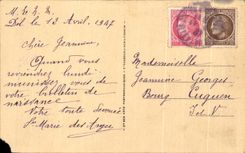 Dol le 12 Avril 1947
Chère Jeannine,
Quand vous
reviendrez lundi
munissez vous de
votre bulletin de
naissance
Votre toute dévouée
Sr Marie des Anges
Mademoiselle
Jeannine Georges
Bourg
I et V